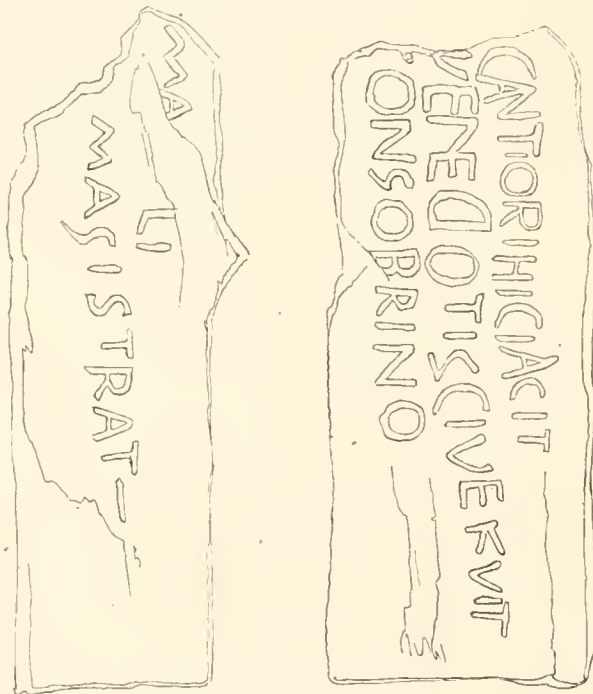 MA LI
MAGISTRAT–
CANTIORIHICIACIT
VENEDOTISCIVEFVIT
ONSOBRINO